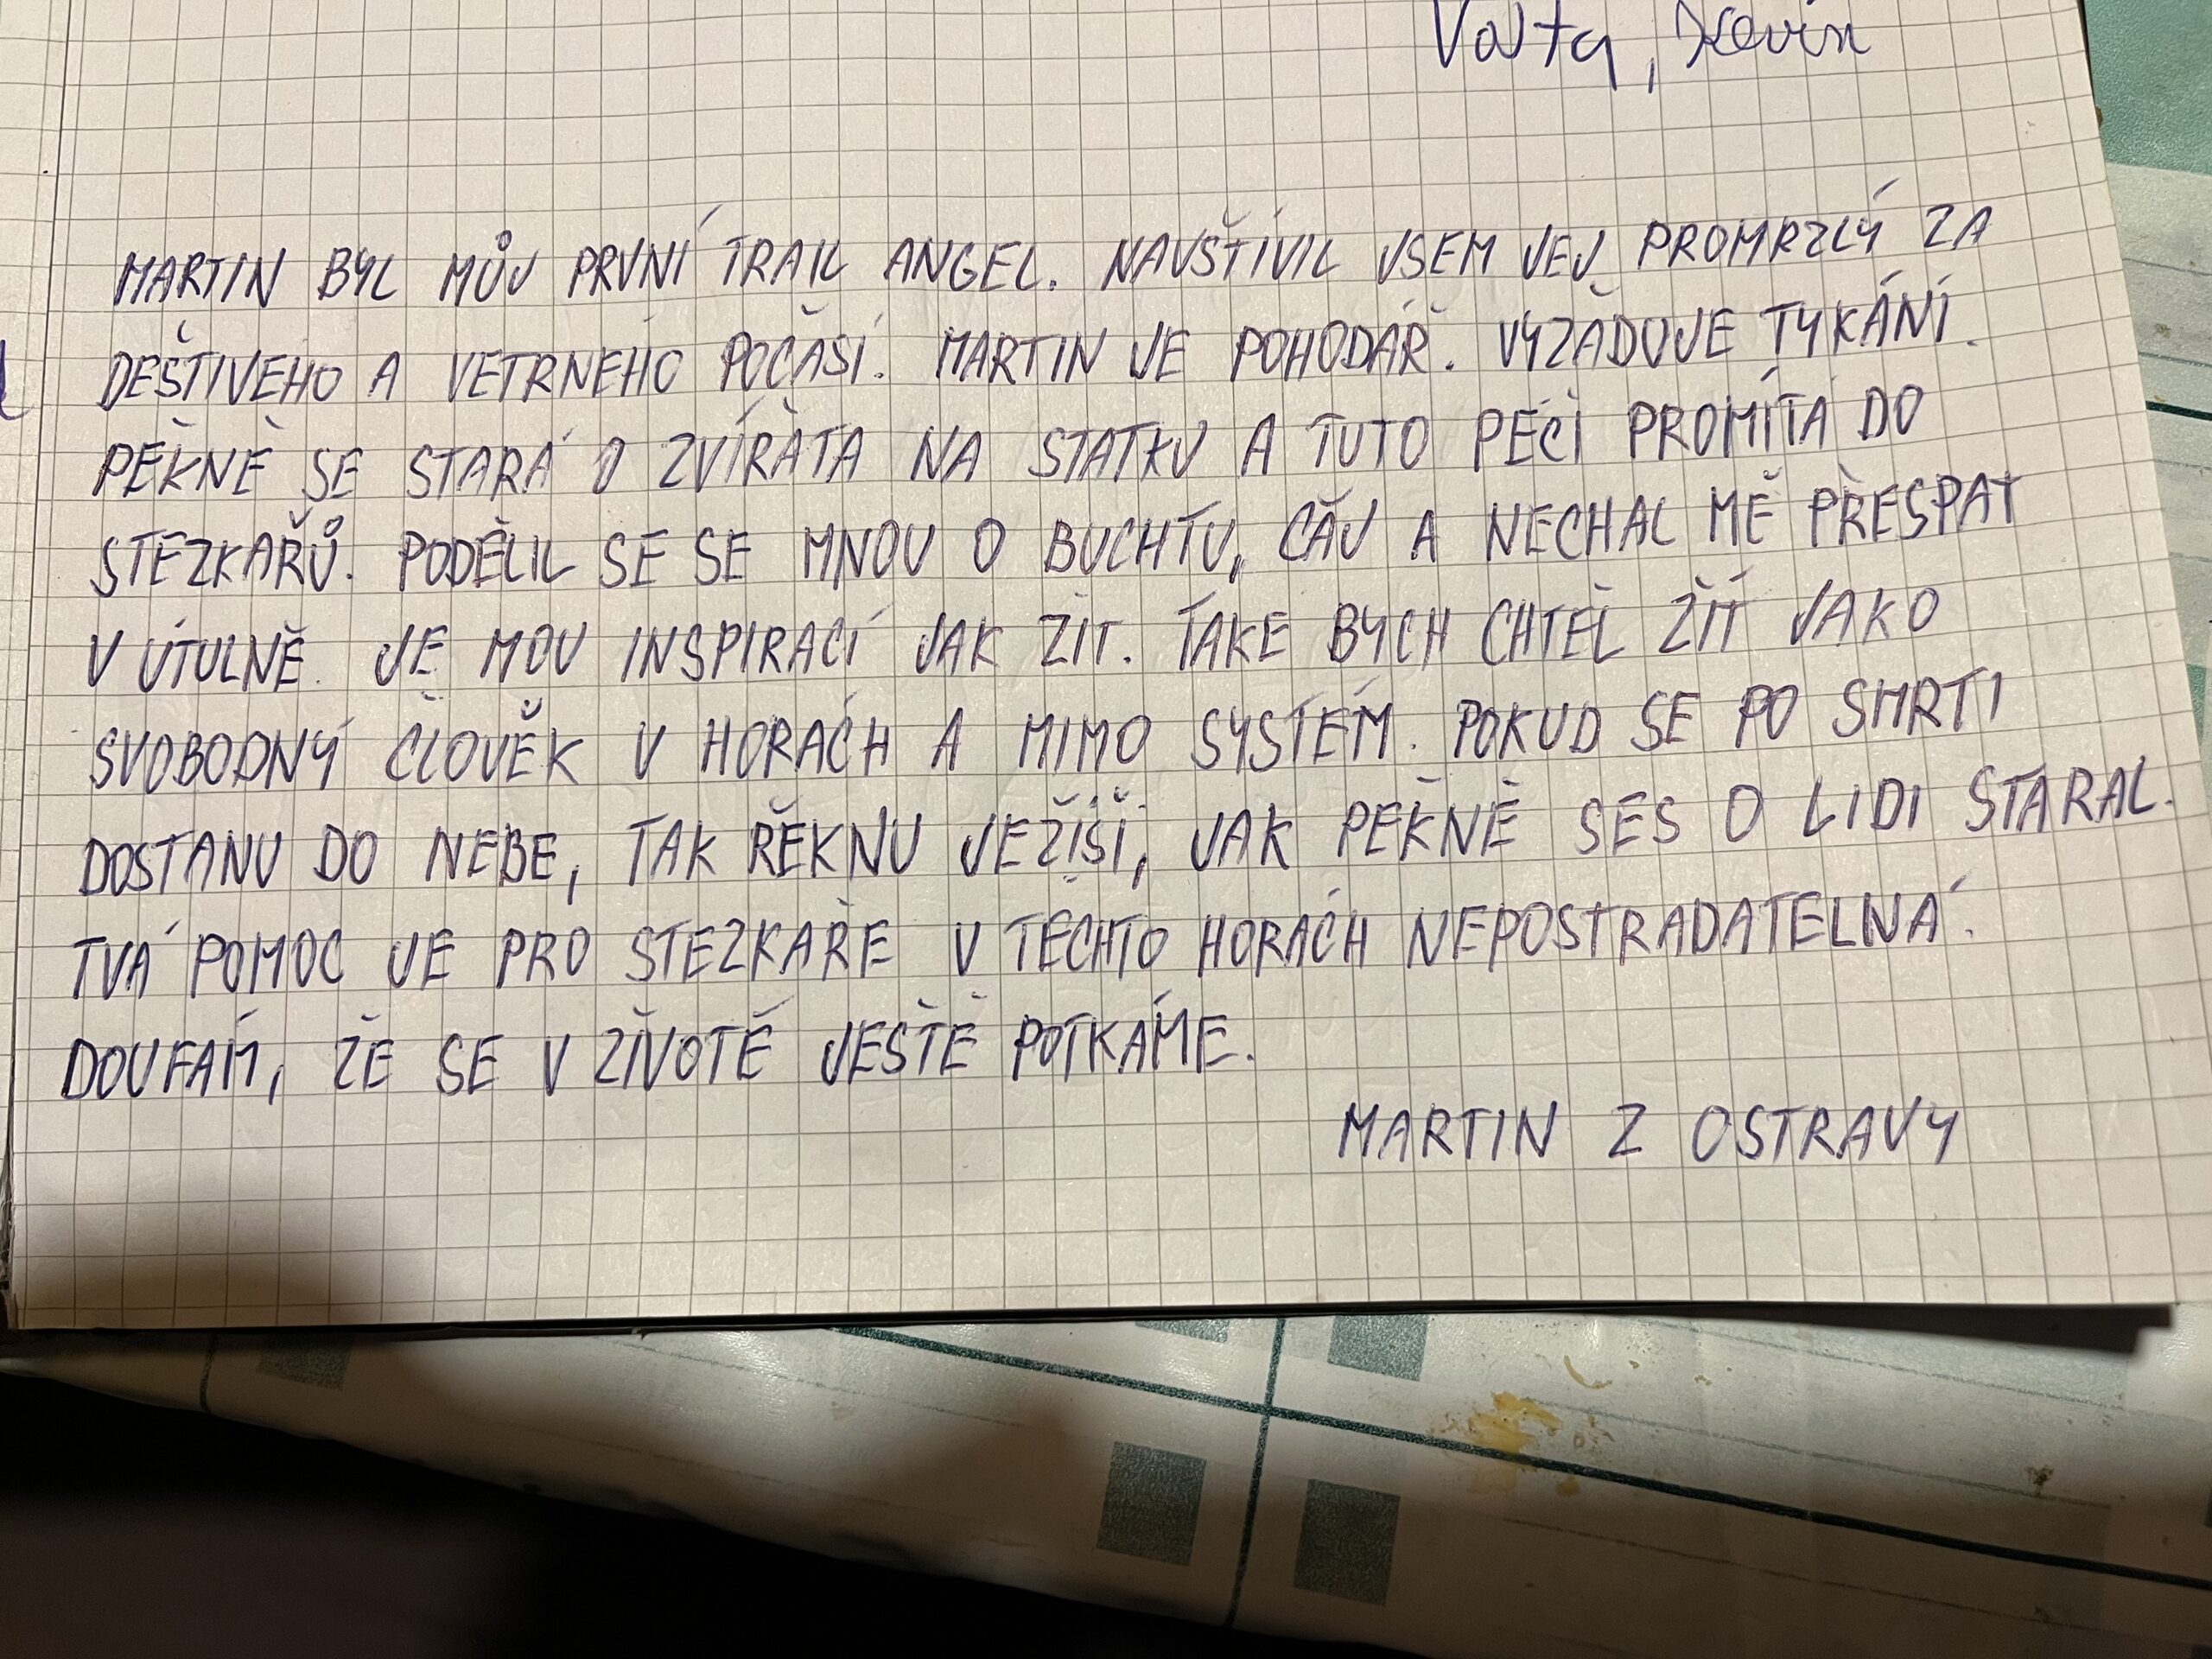 Vojta, Kevin
MARTIN BYL MŮJ PRVNÍ TRAIL ANGEL. NAVŠTÍVIL JSEM JEJ PROMRZLÝ ZA
DEŠTIVÉHO A VĚTRNÉHO POČASÍ. MARTIN JE POHODÁŘ. VYŽADUJE TYKÁNÍ.
PĚKNĚ SE STARÁ O ZVÍŘATA NA STATKU A TUTO PÉČI PROMÍTÁ DO
STEZKAŘŮ. PODĚLIL SE SE MNOU O BUCHTU, ČAJ A NECHAL MĚ PŘESPAT
V ÚTULNĚ. JE MOU INSPIRACÍ JAK ŽÍT. TAKÉ BYCH CHTĚL ŽÍT JAKO
SVOBODNÝ ČLOVĚK V HORÁCH A MIMO SYSTÉM. POKUD SE PO SMRTI
DOSTANU DO NEBE, TAK ŘEKNU JEŽÍŠI, JAK PĚKNĚ SES O LIDI STARAL.
TVÁ POMOC JE PRO STEZKAŘE V TĚCHTO HORÁCH NEPOSTRADATELNÁ.
DOUFÁM, ŽE SE V ŽIVOTĚ JEŠTĚ POTKÁME.
MARTIN Z OSTRAVY